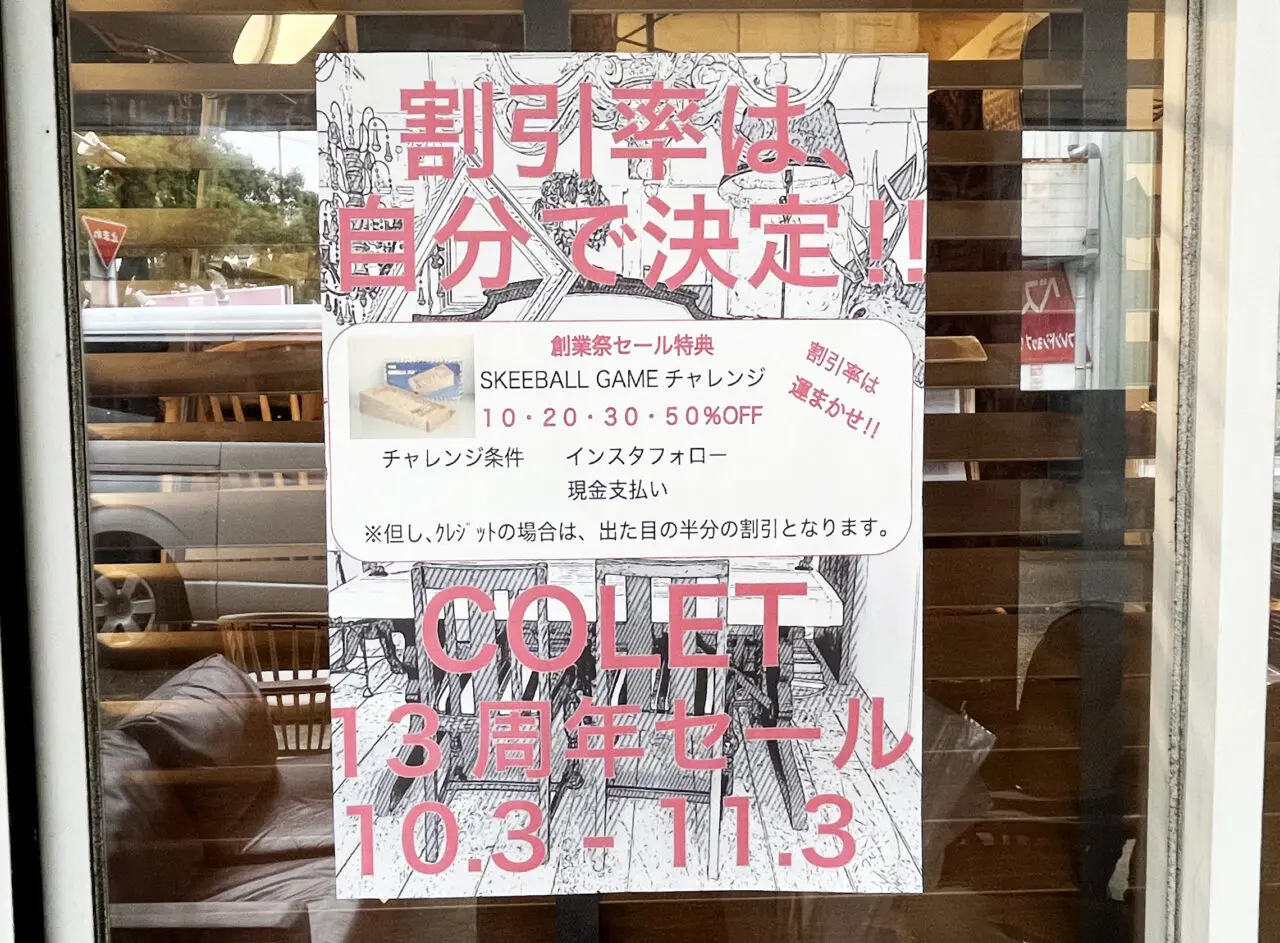 割引率は、
自分で決定!!
創業祭セール特典
SKEEBALL GAME チャレンジ
10・20・30・50%OFF
割引率は
運まかせ!!
チャレンジ条件 インスタフォロー
現金支払い
※但し、ｸﾚｼﾞｯﾄの場合は、出た目の半分の割引となります。
COLET
13周年セール
10.3 - 11.3
止まれ